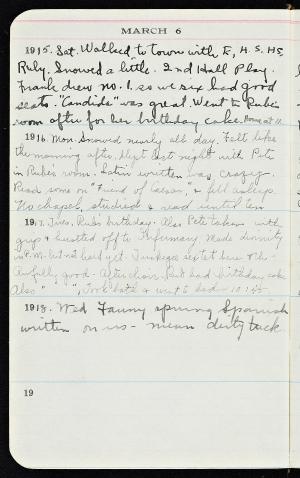 MARCH 6
1915. Sat. Walked to town with E, H. S. H S,
Ruby. Snowed a little. 2nd Hall Play.
Frank drew no. 1. so we six had good
seats. "Candida" was great. Went to Rubie's
room after for her birthday cake. Home at 11.
1916. Mon. Snowed nearly all day. Felt like
the morning after. Slept last night with Pete
in Rubie's room. Latin written was crazy.
Read some on "Friend of Caesar" & fell asleep.
No chapel, studied & read until ten
1917. Tues. Rub's birthday. Also Pete taken with
grip & hustled off to Infirmary. Made divinity
in P.M. but not hard yet. Tuskegee septet here
Awfully good. After choir, Rub had birthday cake
Also " ", Took bath & went to bed - 10:45
1918. Wed Fanny sprung Spanish
written on us - mean dirty tack
19